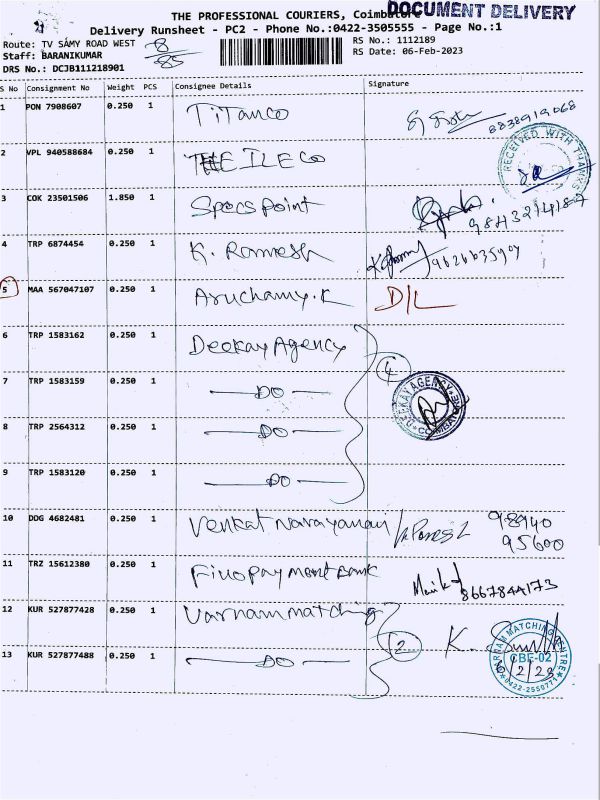 THE PROFESSIONAL COURIERS, Coimbatore
DOCUMENT DELIVERY
Delivery Runsheet - PC2 - Phone No.:0422-3505555 - Page No.:1
Route: TV SAMY ROAD WEST
RS No.: 1112189
Staff: BARANIKUMAR
RS Date: 06-Feb-2023
DRS No.: DCJB111218901
8
85
S No Consignment No Weight PCS Consignee Details Signature
1 PON 7908607 0.250 1 TiTanco 8838919068
RECEIVED WITH THANKS
2 VPL 940588684 0.250 1 THE ILECO
3 COK 23501506 1.850 1 Specspoint
4 TRP 6874454 0.250 1 K. Ramesh 9626635904
5 MAA 567047107 0.250 1 Aruchamy.K D/L
6 TRP 1583162 0.250 1 Deekay Agency
7 TRP 1583159 0.250 1 DO 4
DEEKAY AGENCY COIMBATORE
8 TRP 2564312 0.250 1 DO
9 TRP 1583120 0.250 1 DO
10 DDG 4682481 0.250 1 Venkat Narayanan 98940
95600
11 TRZ 15612380 0.250 1 Fino Payment Bank 8667844173
12 KUR 527877428 0.250 1 Varnam matching 2
VARNAM MATCHING CENTRE
CBE-02
6/2/23
0422-2550771
13 KUR 527877488 0.250 1 DO